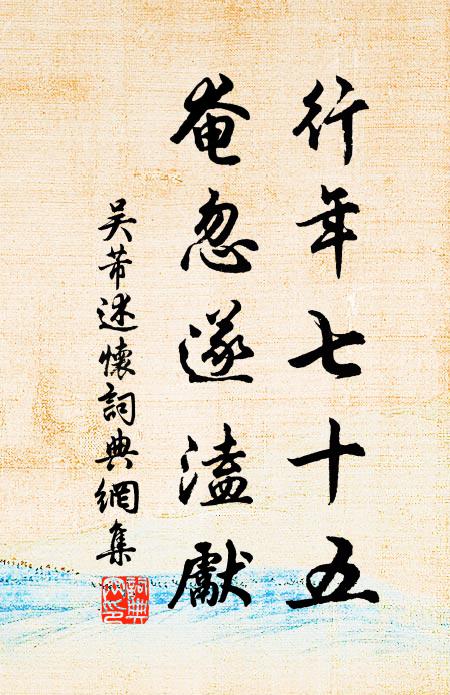 行年七十五
奄忽遂溘獻
吴芾述懷詞典網集